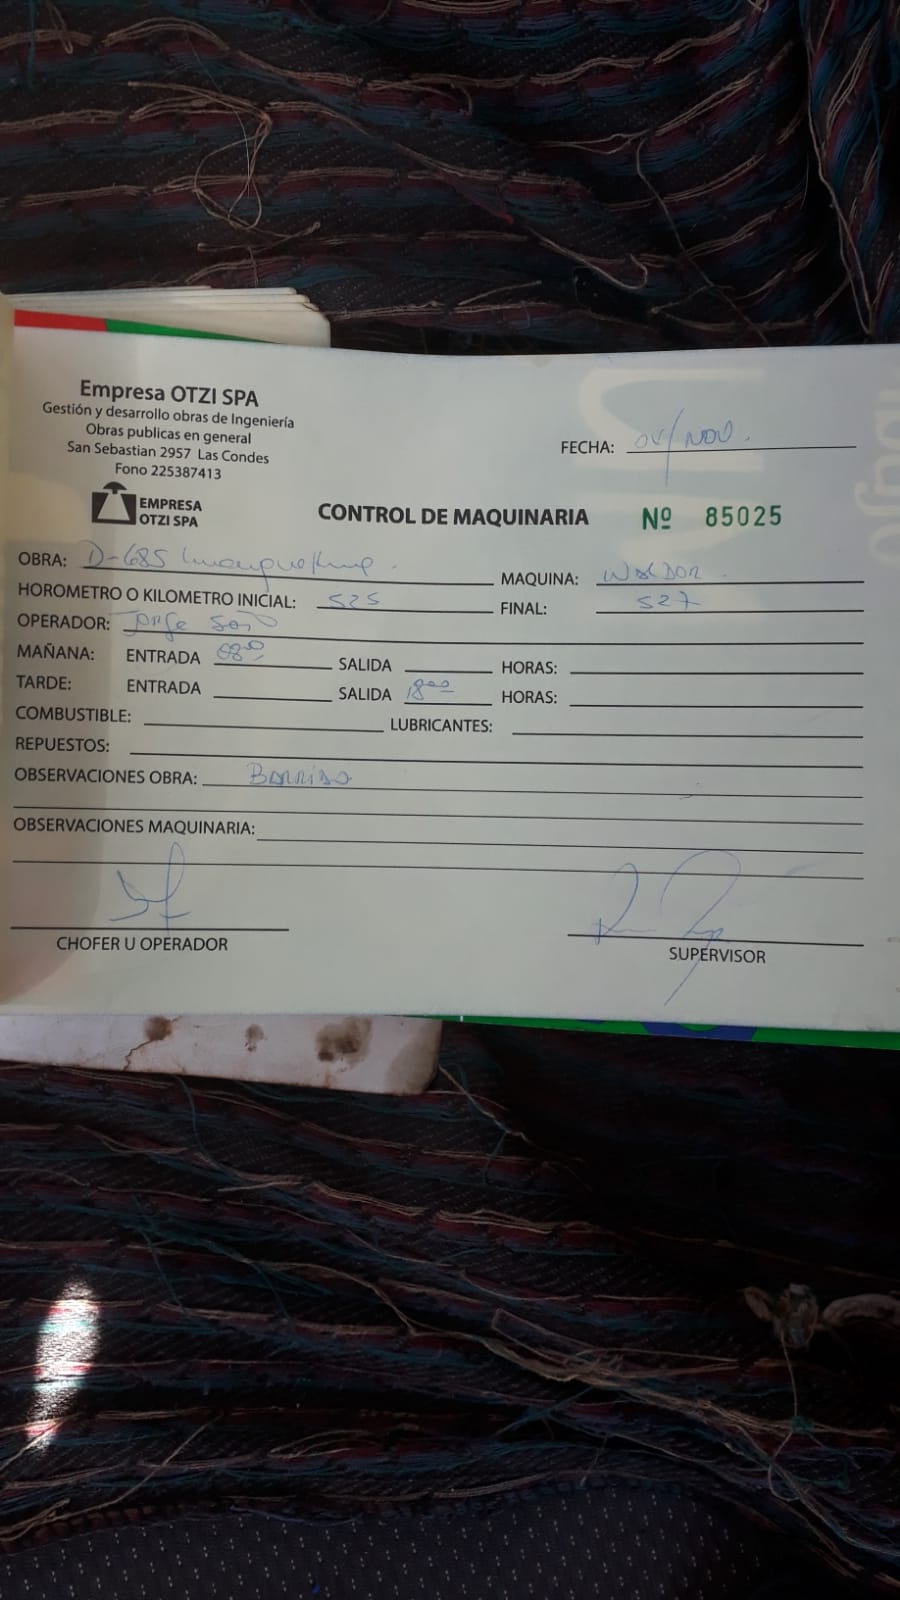 Empresa OTZI SPA
Gestión y desarrollo obras de Ingeniería
Obras publicas en general
San Sebastian 2957 Las Condes
Fono 225387413
EMPRESA
OTZI SPA
FECHA: 04/NOV.
CONTROL DE MAQUINARIA Nº 85025
OBRA: D-685 MAQUINA:
HOROMETRO O KILOMETRO INICIAL: 525 FINAL: 527
OPERADOR: Jorge Soto
MAÑANA: ENTRADA 08:00 SALIDA HORAS:
TARDE: ENTRADA SALIDA 18:00 HORAS:
COMBUSTIBLE: LUBRICANTES:
REPUESTOS:
OBSERVACIONES OBRA: BARRIDO
OBSERVACIONES MAQUINARIA:
CHOFER U OPERADOR SUPERVISOR